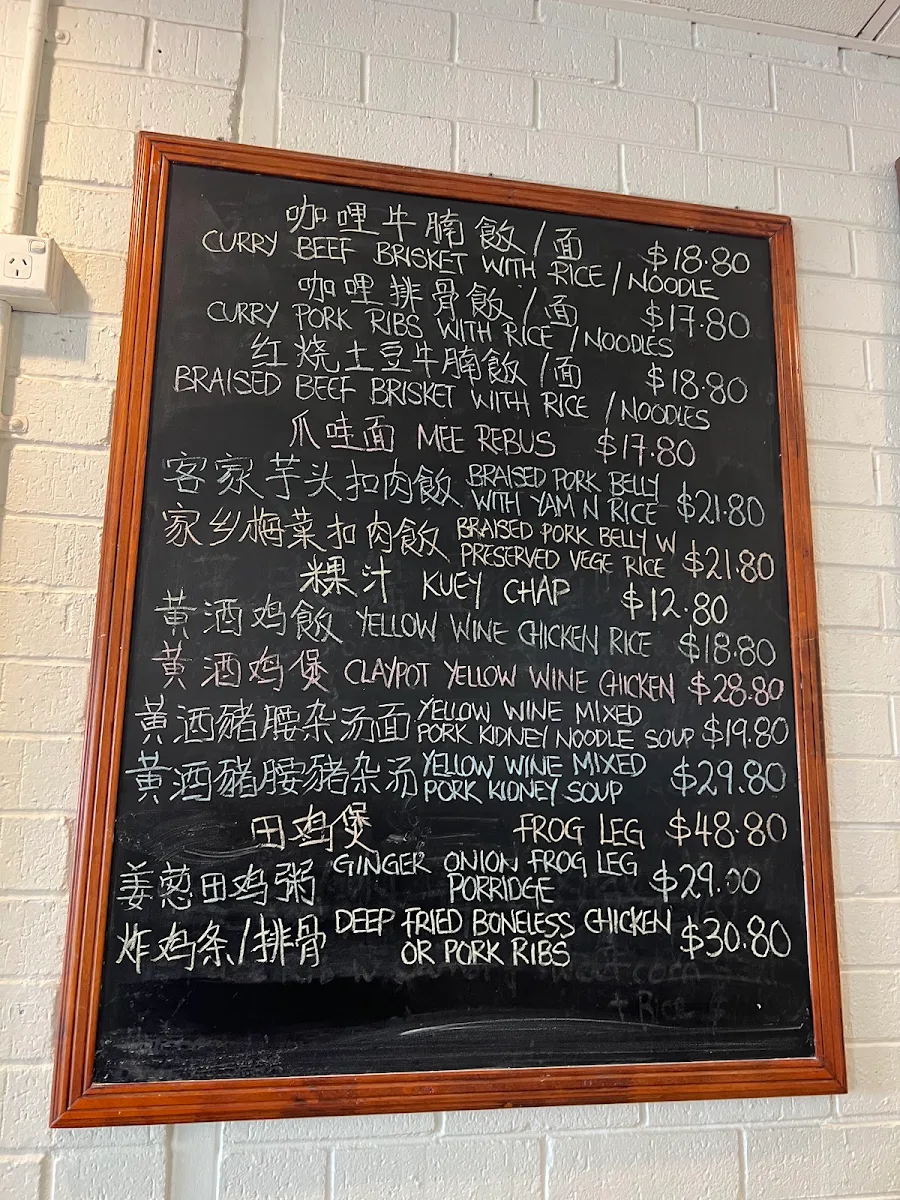 咖哩牛腩飯/面 $18.80
CURRY BEEF BRISKET WITH RICE / NOODLE
咖哩排骨飯/面 $17.80
CURRY PORK RIBS WITH RICE / NOODLES
红烧土豆牛腩飯/面 $18.80
BRAISED BEEF BRISKET WITH RICE / NOODLES
爪哇面 MEE REBUS $17.80
客家芋头扣肉飯 BRAISED PORK BELLY
WITH YAM N RICE $21.80
家乡梅菜扣肉飯 BRAISED PORK BELLY W
PRESERVED VEGE RICE $21.80
粿汁 KUEY CHAP $12.80
黄酒鸡飯 YELLOW WINE CHICKEN RICE $18.80
黄酒鸡煲 CLAYPOT YELLOW WINE CHICKEN $28.80
黄酒豬腰杂汤面 YELLOW WINE MIXED
PORK KIDNEY NOODLE SOUP $19.80
黄酒豬腰豬杂汤 YELLOW WINE MIXED
PORK KIDNEY SOUP $29.80
田鸡煲 FROG LEG $48.80
姜葱田鸡粥 GINGER ONION FROG LEG
PORRIDGE $29.00
炸鸡条/排骨 DEEP FRIED BONELESS CHICKEN
OR PORK RIBS $30.80
+ Rice $